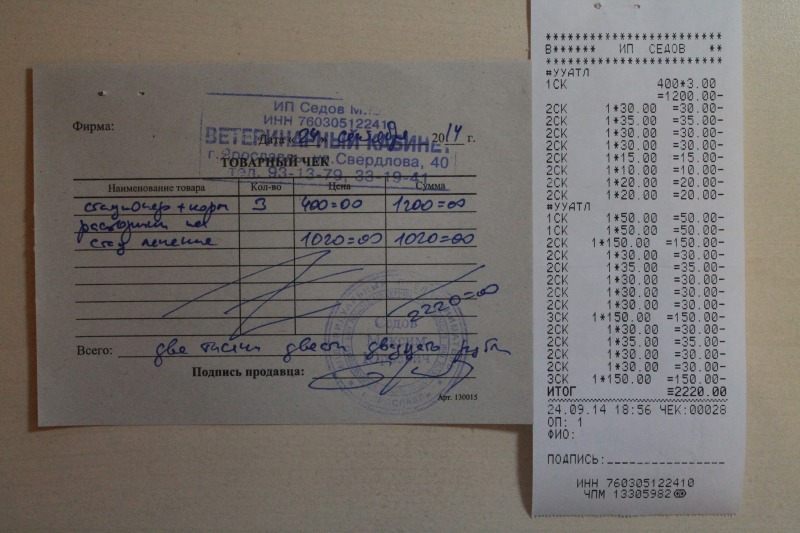 Фирма:
ИП Седов М.
ИНН 760305122410
ВЕТЕРИНАРНЫЙ КАБИНЕТ
Дата «24» сентября 2014 г.
г. Ярославль, ул.Свердлова, 40
ТОВАРНЫЙ ЧЕК
тел. 93-13-79, 33-19-41
Наименование товара Кол-во Цена Сумма
стационар + корм 3 400=00 1200=00
расходники на
стац лечение 1020=00 1020=00
2220=00
Седов
Всего: две тысячи двести двадцать рубл
Подпись продавца:
Арт. 130015
************************
В****** ИП СЕДОВ **
************************
#УУАТЛ
1СК 400*3.00
=1200.00-
2СК 1*30.00 =30.00-
2СК 1*35.00 =35.00-
2СК 1*30.00 =30.00-
2СК 1*30.00 =30.00-
2СК 1*15.00 =15.00-
2СК 1*10.00 =10.00-
2СК 1*20.00 =20.00-
2СК 1*20.00 =20.00-
#УУАТЛ
1СК 1*50.00 =50.00-
1СК 1*50.00 =50.00-
2СК 1*150.00 =150.00-
2СК 1*30.00 =30.00-
2СК 1*35.00 =35.00-
2СК 1*30.00 =30.00-
2СК 1*30.00 =30.00-
2СК 1*30.00 =30.00-
3СК 1*150.00 =150.00-
2СК 1*30.00 =30.00-
2СК 1*35.00 =35.00-
2СК 1*30.00 =30.00-
2СК 1*30.00 =30.00-
3СК 1*150.00 =150.00-
ИТОГ ≡2220.00
24.09.14 18:56 ЧЕК:00028
ОП: 1
ФИО:
ПОДПИСЬ:_______________
ИНН 760305122410
ЧПМ 13305982